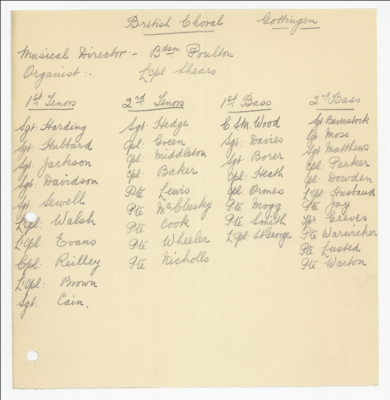 British Choral Gottingen
Musical Director:- Bdsm Poulton
Organist:- L/Cpl Shears
1st Tenors
Sgt Harding
Sgt Hubbard
Sgt Jackson
Sgt Davidson
Sgt Sewell
L/Cpl: Walsh
L/Cpl: Evans
Cpl: Reilley
L/Cpl: Brown
Sgt: Cain.
2nd Tenors
Sgt: Hedge
Cpl: Green
Cpl: Middleton
Cpl: Baker
Pte Lewis
Pte McClusky
Pte Cook
Pte Wheeler
Pte Nicholls
1st Bass
C.S.M. Wood
Sgt: Davies
Sgt: Borer
Cpl: Heath
Cpl Ormes
Pte Mogg
Pte Smith
L/Cpl StGeorge
2nd Bass
Sgt Baverstock
Sgt Moss
Sgt Matthews
Cpl Parker
Cpl: Dowden
L/Cpl Ausbaud
Pte Jay
Reeves
Pte Warwicker
Pte Lusted
Pte Warton